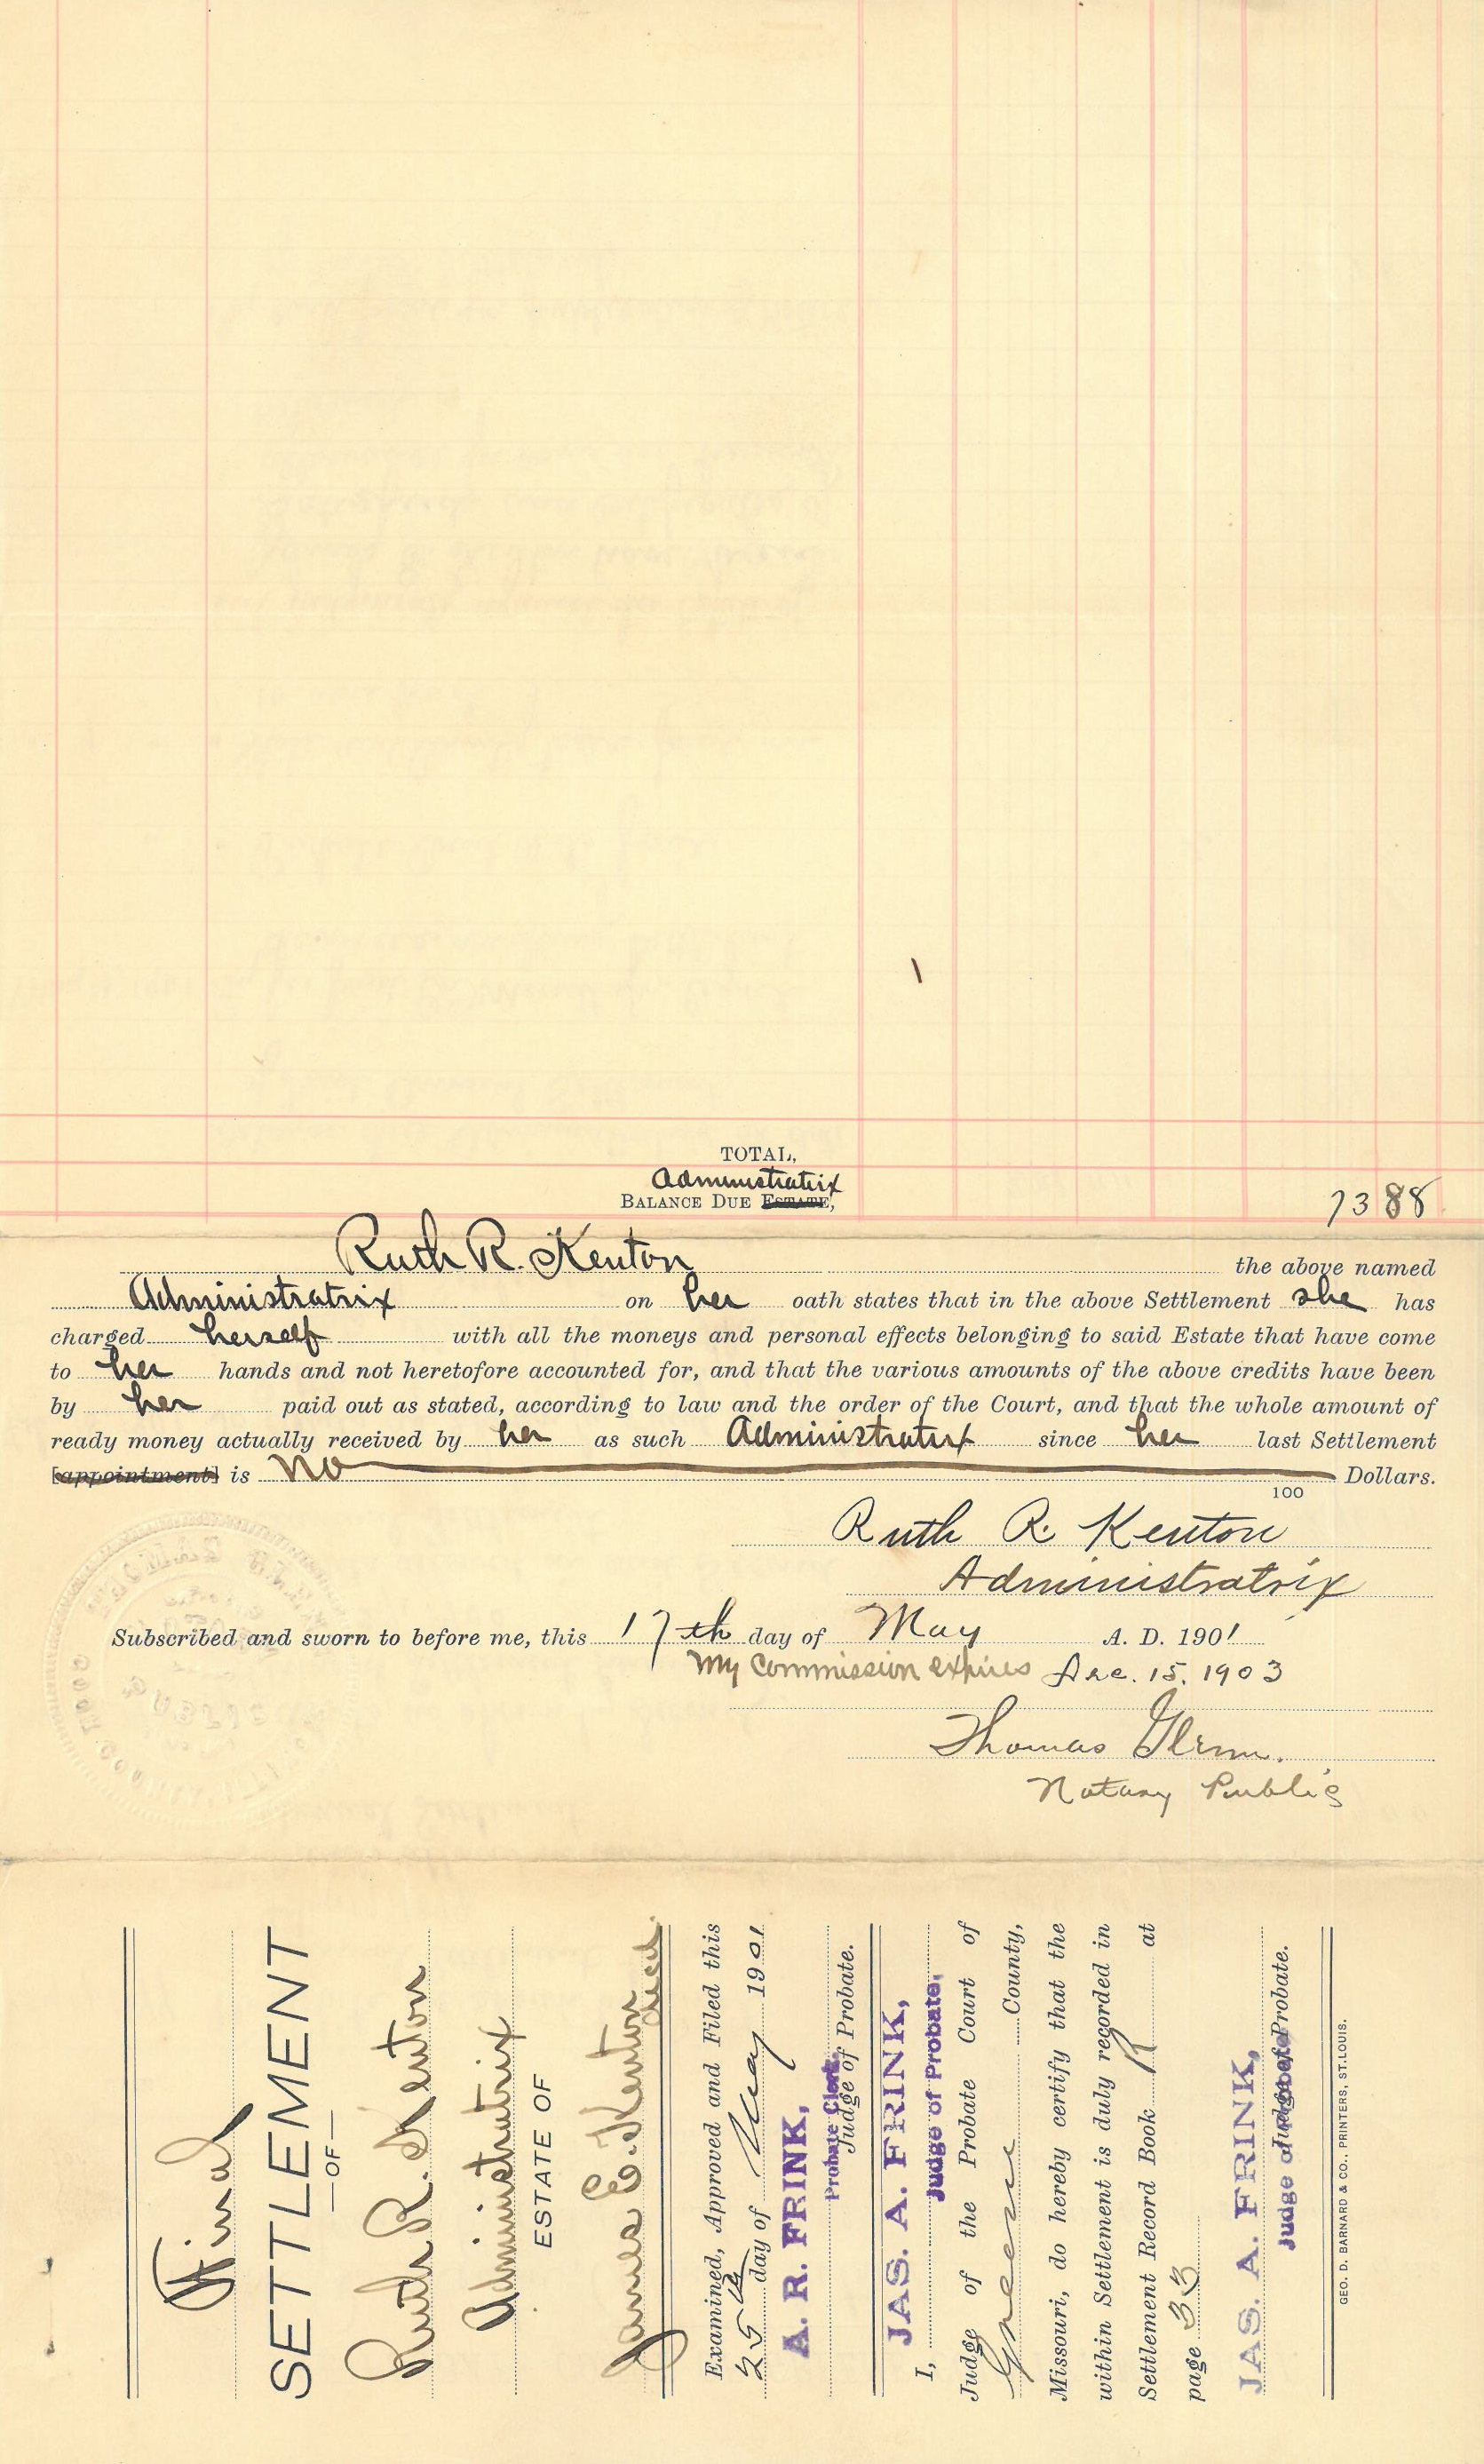 TOTAL,
Administratrix
BALANCE DUE ESTATE,
73 88
Ruth R. Kenton the above named
Administratrix on her oath states that in the above Settlement she has
charged herself with all the moneys and personal effects belonging to said Estate that have come
to her hands and not heretofore accounted for, and that the various amounts of the above credits have been
by her paid out as stated, according to law and the order of the Court, and that the whole amount of
ready money actually received by her as such Administratrix since her last Settlement
[appointment] is no Dollars.
100
Ruth R. Kenton
Administratrix
Subscribed and sworn to before me, this 17th day of May A. D. 1901
My Commission expires Dec. 15, 1903
Thomas Glenn.
Notary Public
Final
SETTLEMENT
—OF—
Ruth R. Kenton
Administratrix
ESTATE OF
James E. Kenton
decd.
Examined, Approved and Filed this
25th day of May 1901
A. R. FRINK,
Probate Clerk.
Judge of Probate.
JAS. A. FRINK,
I, Judge of Probate,
Judge of the Probate Court of
Greene County,
Missouri, do hereby certify that the
within Settlement is duly recorded in
Settlement Record Book R at
page 33
JAS. A. FRINK,
Judge of Probate.
Judge of Probate.
GEO. D. BARNARD & CO., PRINTERS, ST. LOUIS.